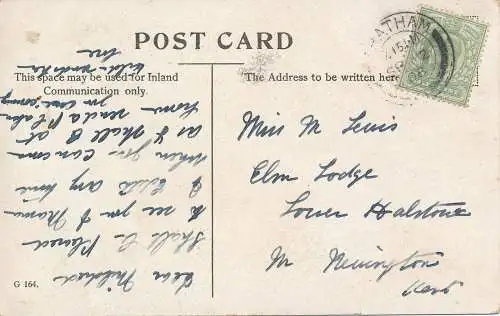 POST CARD
This space may be used for Inland
Communication only.
The Address to be written here
CHATHAM
Miss M Lewis
Elm Lodge
Lower Halstow
Nr Newington
Kent
Dear Mildred
Shall be pleased
to see you & Mama
& Edith any time
when you can come
as I shall be at
home send a P
you coming
me
G 164.